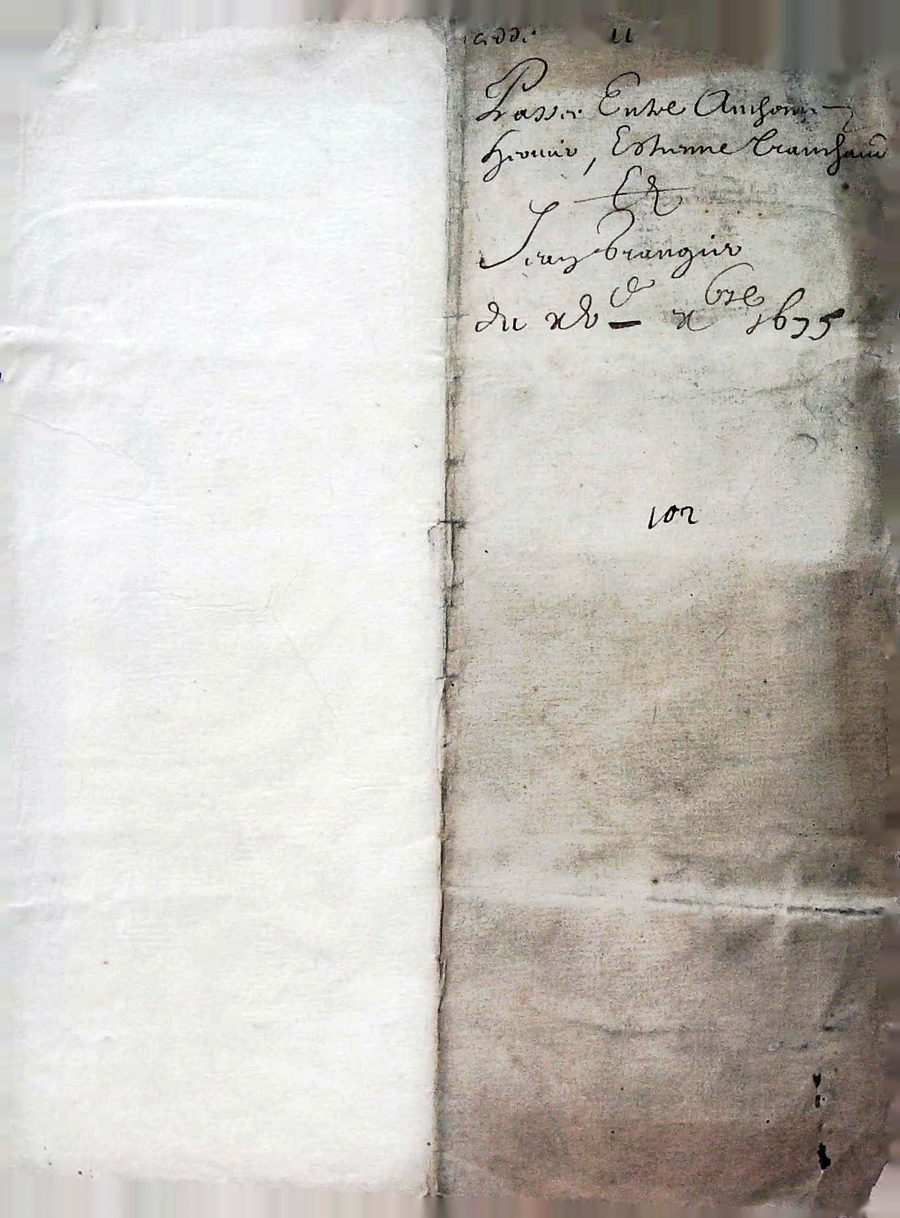 11
Passée Entre Anthoine
Estienne Tranchand
Et
Jean Brangier
du xv e xbre 1675
102